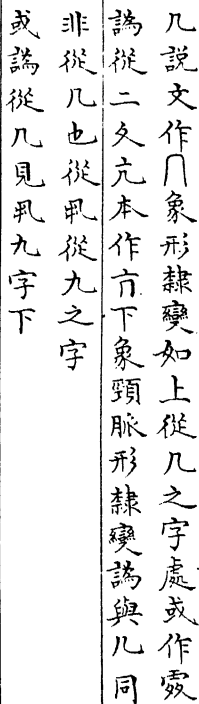 几說文作冂象形隸變如上從几之字處或作
譌從二夂亢本作下象頸脈形隸變譌與几同
非從几也從丮從九之字
或譌從几見丮九字下